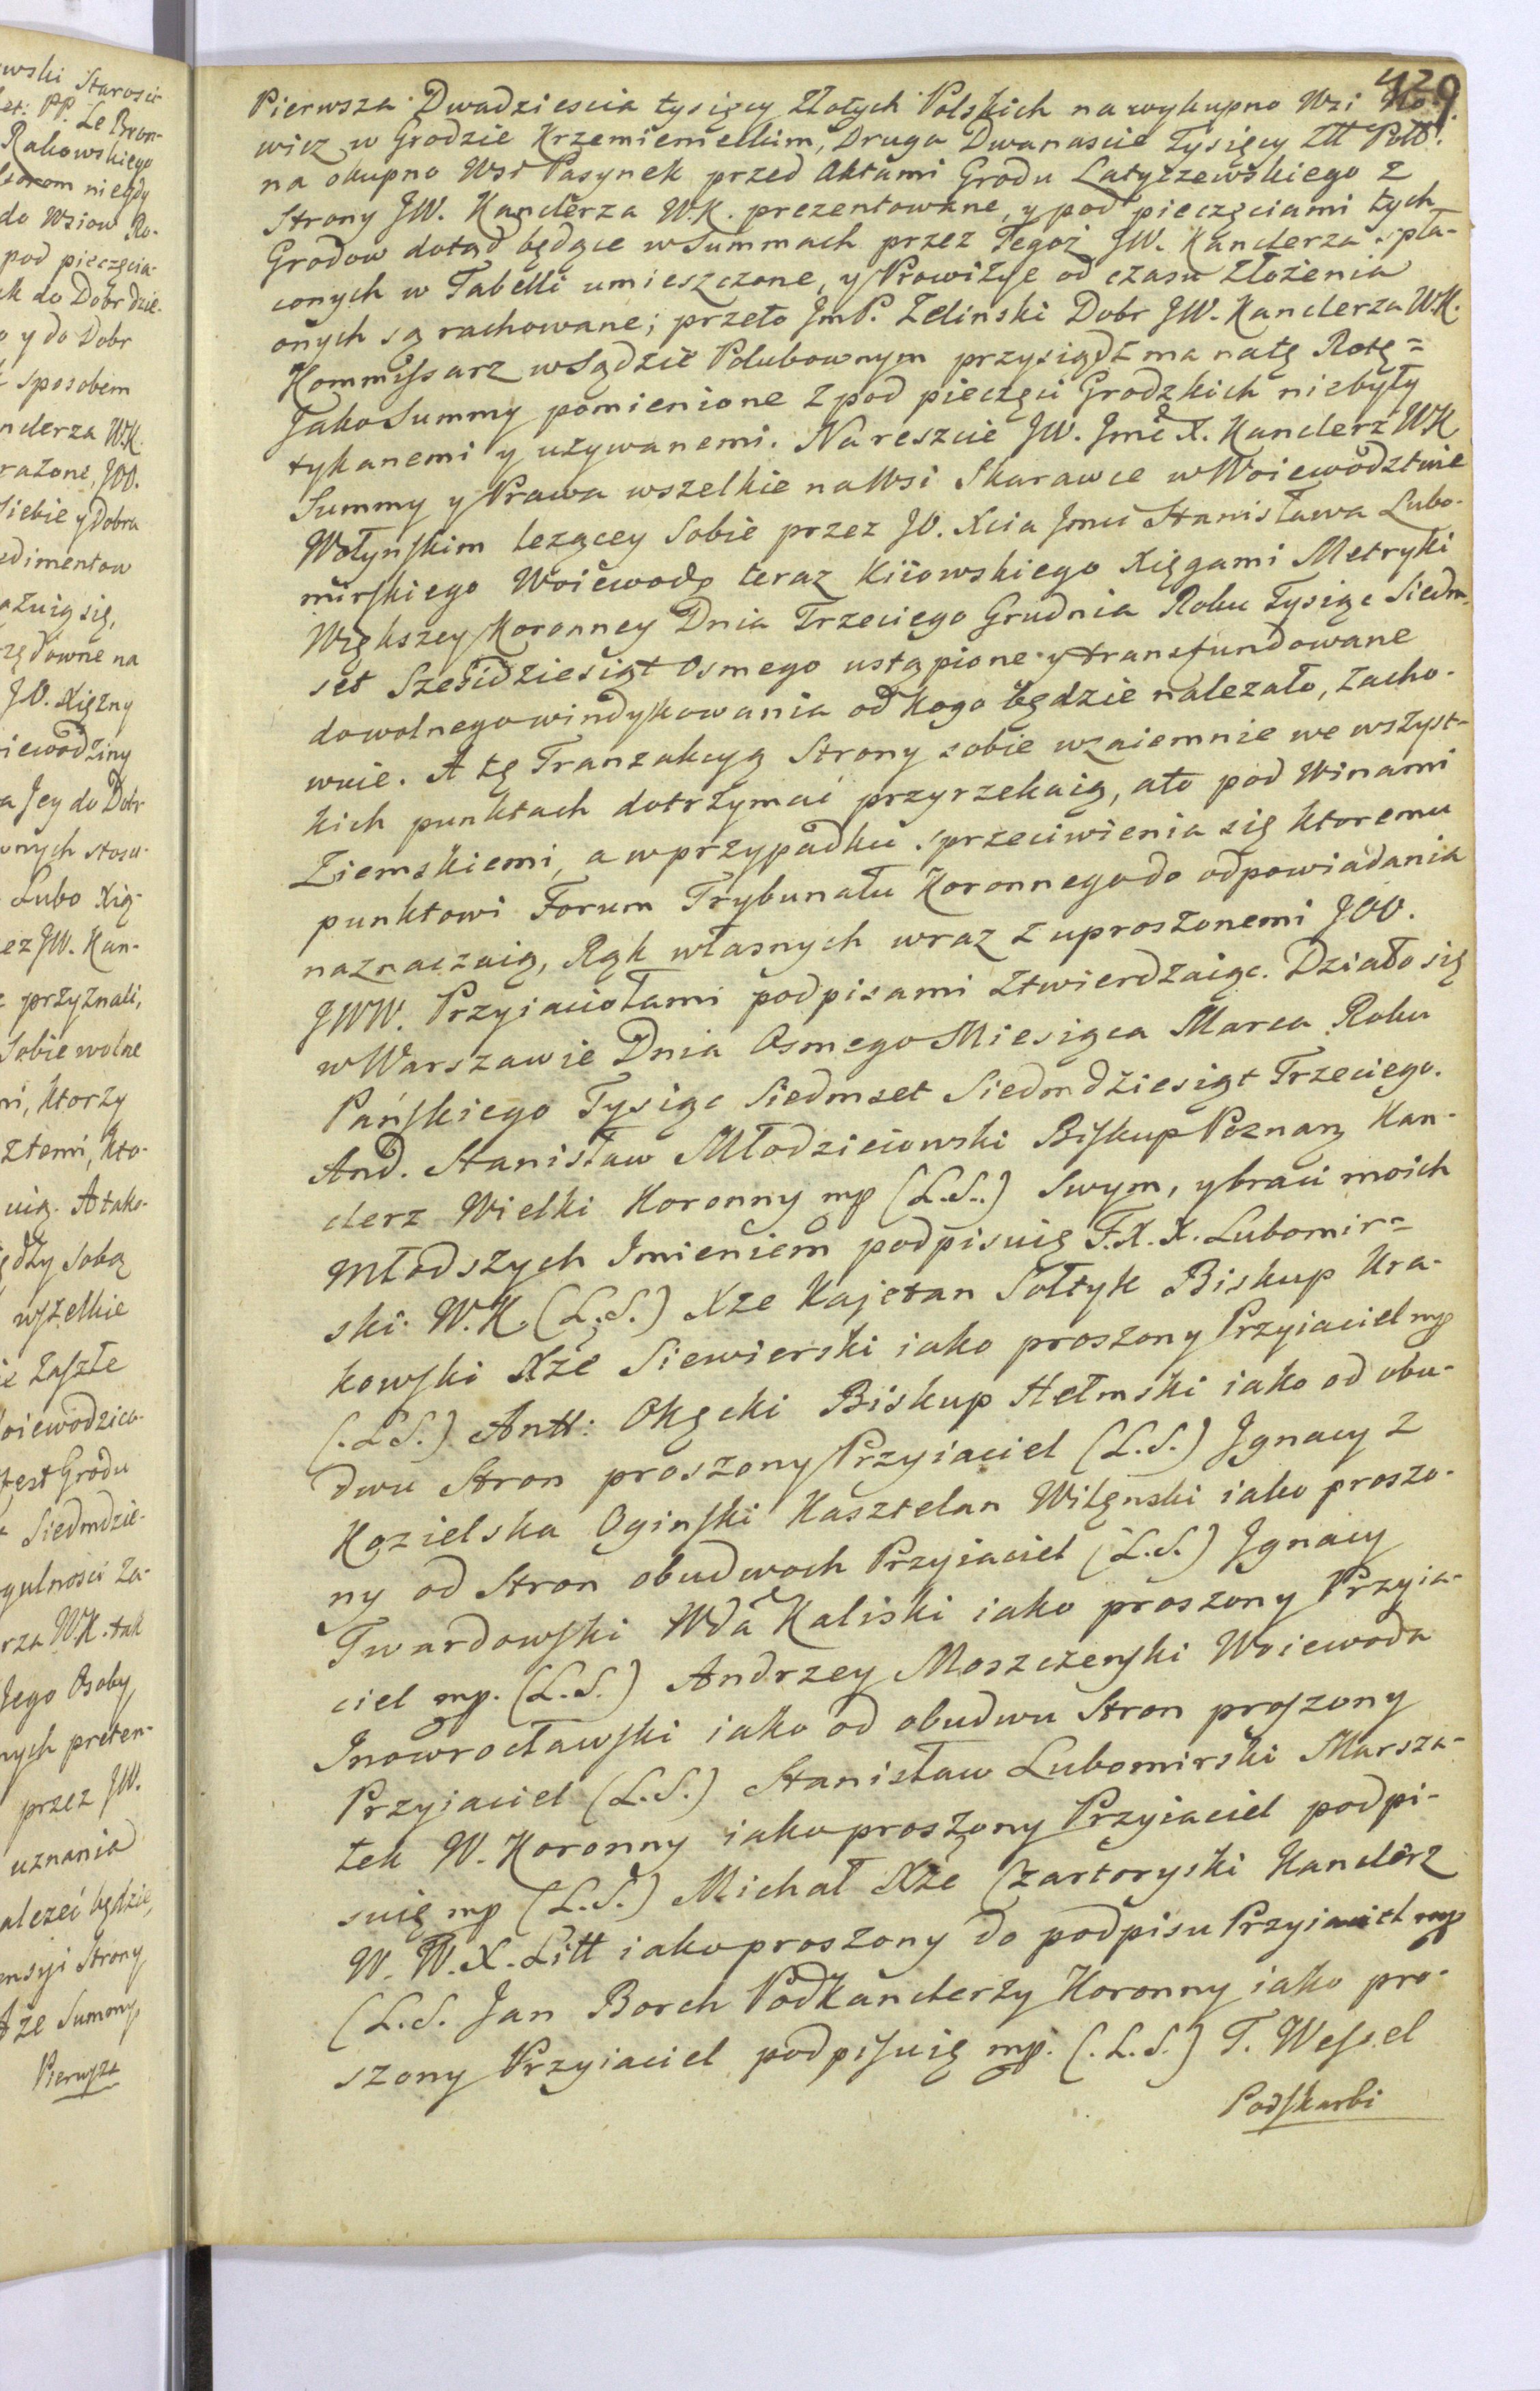 wski Starosci-
et: PP. Le Bron-
Rakowskiego
ktorom niegdy
do Wsiow Ro-
pod pieczęcia-
ak do Dobr dzie-
o y do Dobr
sposobem
nclerza WK.
rażone, JOO.
Siebie y Dobra
edimentow
azuią się,
rzędowne na
JO. Xiężny
oiewodziny
a Jey do Dobr
wnych stosu-
Lubo Xią-
ez JW. Kan-
przyznali,
Sobie wolne
ni, ktorzy
ztemi, kto-
uią. A tako-
iędzy sobą
wszelkie
ie zaszłe
oiewodzico-
fest Grodu
Siedmdzie-
gulnosci Za-
rza WK. tak
Jego Osoby
nych preten-
przez JW.
uznania
alezeć będzie,
ensyi Strony
A że Summy,
Pierwsza
429
Pierwsza Dwadziescia tysięcy Złotych Polskich na wykupno Wsi
wicz w Grodzie Krzemienieckim, Druga Dwanascie Tysięcy Złł Polł:
na okupno Wsi Pasynek przed Aktami Grodu Latyczewskiego z
Strony JW. Kanclerza W.K. prezentowane, y pod pieczęciami tych
Grodow dotąd będące w Summach przez Tegoż JW. Kanclerza spła-
conych w Tabelli umieszczone, y Prowizye od czasu Złożenia
onych są rachowane; przeto JmP. Zelinski Dobr JW. Kanclerza W.K.
Kommissarz w Sądzie Polubownym przysiądz ma na tę Rotę=
Jako Summy pomienione z pod pieczęci Grodzkich nie były
tykanemi y używanemi. Nareszcie JW. Jmć X. Kanclerz WK
Summy y Prawa wszelkie na Wsi Skarawce w Woiewodztwie
Wołynskim lezącey Sobie przez JO. Xcia Jmci Stanisława Lubo-
mirskiego Woiewodę teraz Kiiowskiego Xięgami Metryki
Większey Koronney Dnia Trzeciego Grudnia Roku Tysiąc Siedm-
set Szesćdziesiąt Osmego ustąpione y transfundowane
do wolnego windykowania od Kogo będzie nalezało, zacho-
wuie. A tę Tranzakcyą Strony sobie wzaiemnie we wszyst-
kich punktach dotrzymać przyrzekaią, a to pod Winami
Ziemskiemi, a w przypadku sprzeciwienia się ktoremu
punktowi Forum Trybunału Koronnego do odpowiadania
naznaczaią, Rąk własnych wraz z uproszonemi JOO.
JWW. Przyiaciołami podpisami Ztwierdzaiąc. Działo się
w Warszawie Dnia Osmego Miesiąca Marca Roku
Pańskiego Tysiąc Siedmset Siedmdziesiąt Trzeciego.
And. Stanisław Młodzieiowski Biskup Poznan Kan-
clerz Wielki Koronny mp (L.S.) Swym, y braci moich
młodszych Imieniem podpisuię F.X.X. Lubomir=
ski. W.K. (L.S.) Xże Kajetan Sołtyk Biskup Kra-
kowski Xże Siewierski iako proszony Przyiaciel mp
(.L.S.) Antt: Okęcki Biskup Hełmski iako od obu-
dwu Stron proszony Przyiaciel (L.S.) Jgnacy z
Kozielska Oginski Kasztelan Wilenski iako proszo-
ny od Stron obudwoch Przyiaciel (L.S.) Jgnacy
Twardowski Wda Kaliski iako proszony Przyia-
ciel mp. (L.S.) Andrzey Moszczenski Woiewoda
Inowrocławski iako od obudwu Stron proszony
Przyiaciel (L.S.) Stanisław Lubomirski Marsza-
łek W. Koronny iako proszony Przyiaciel podpi-
suię mp (L.S.) Michał Xże Czartoryski Kanclerz
W. W.X. Litt iako proszony do podpisu Przyiaciel mp
(L.S. Jan Borch Podkanclerzy Koronny iako pro-
szony Przyiaciel podpisuię mp. (.L.S.) T. Wessel
Podskarbi